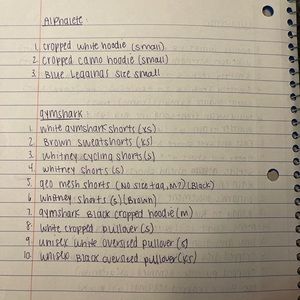 Alphalete
1. cropped white hoodie (small)
2. cropped camo hoodie (small)
3. Blue Leggings size small
gymshark
1. white gymshark shorts (xs)
2. Brown sweatshorts (xs)
3. whitney cycling shorts (s)
4. whitney shorts (s)
5. geo mesh shorts (No size tag, M?) (Black)
6. whitney shorts (s) (Brown)
7. gymshark Black cropped hoodie (m)
8. white cropped pullover (s)
9. unisex white oversised pullover (s)
10. unisex Black oversised pullover (xs)